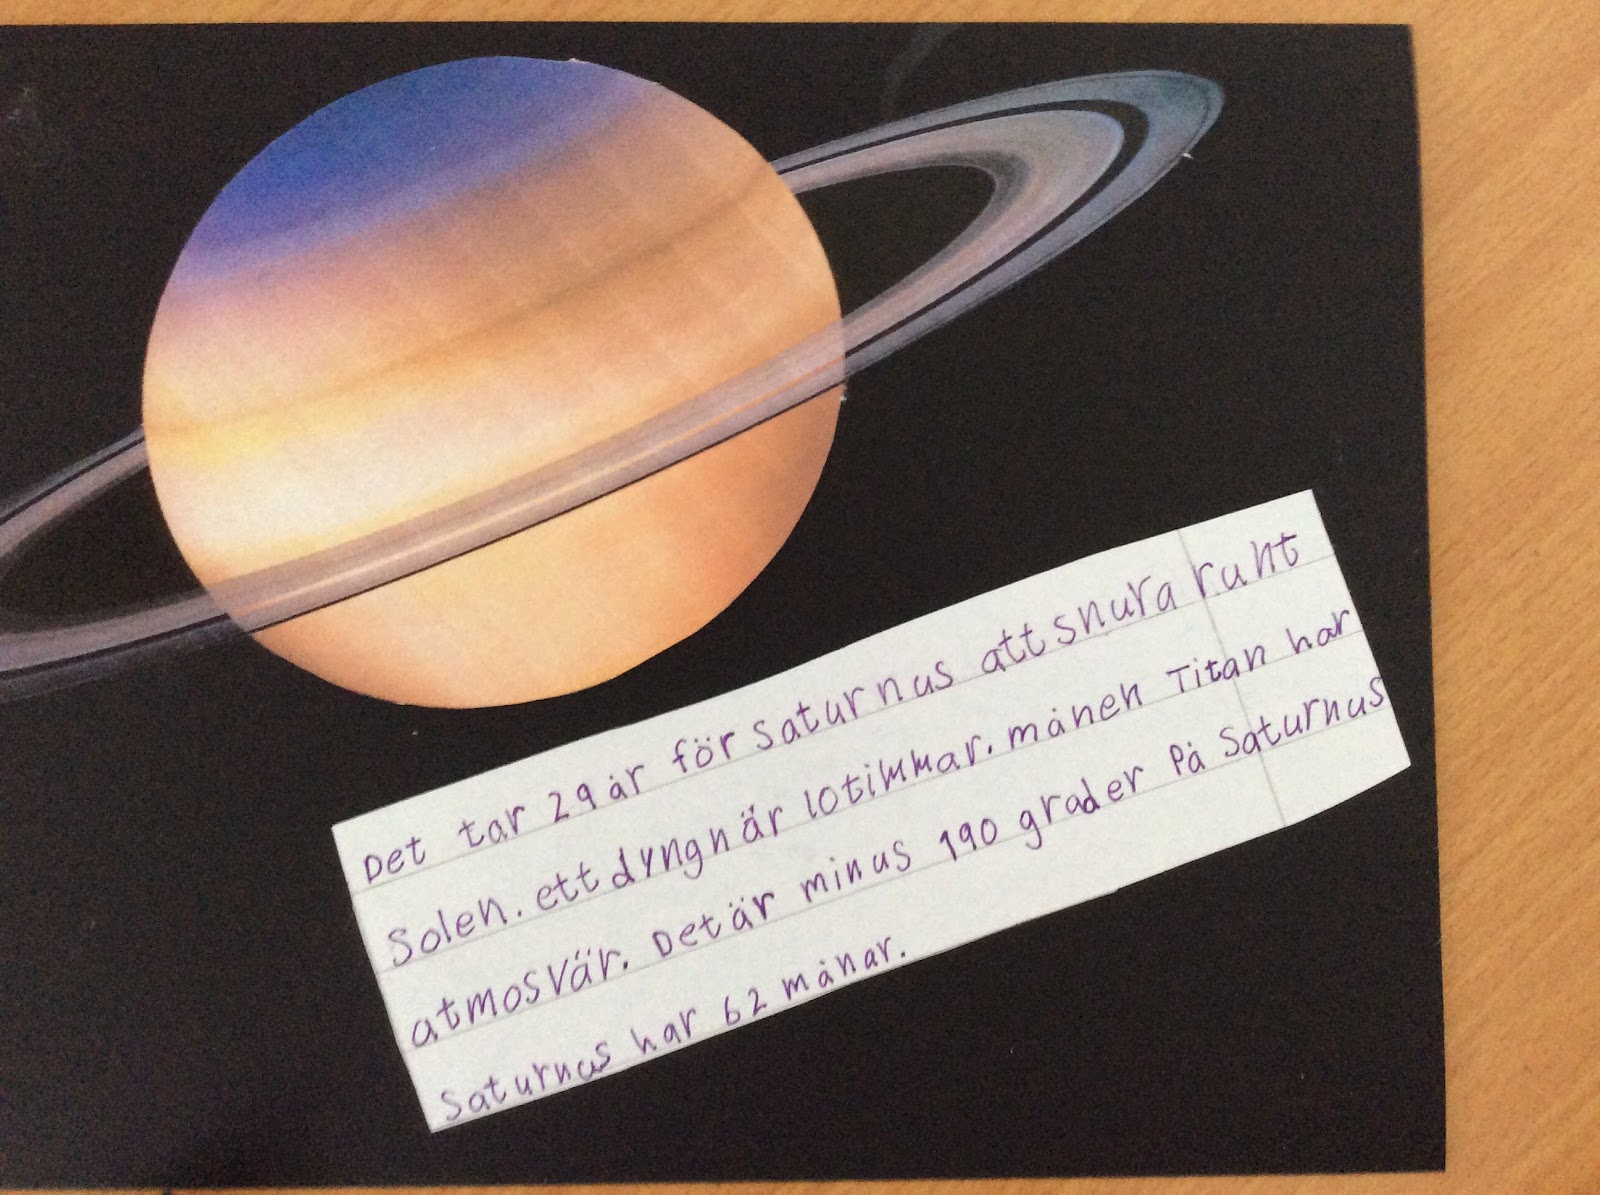 Det tar 29 år för Saturnus att snura runt
Solen. ett dyngn är 10 timmar. månen Titan har
atmosvär. Det är minus 190 grader på Saturnus
Saturnus har 62 månar.